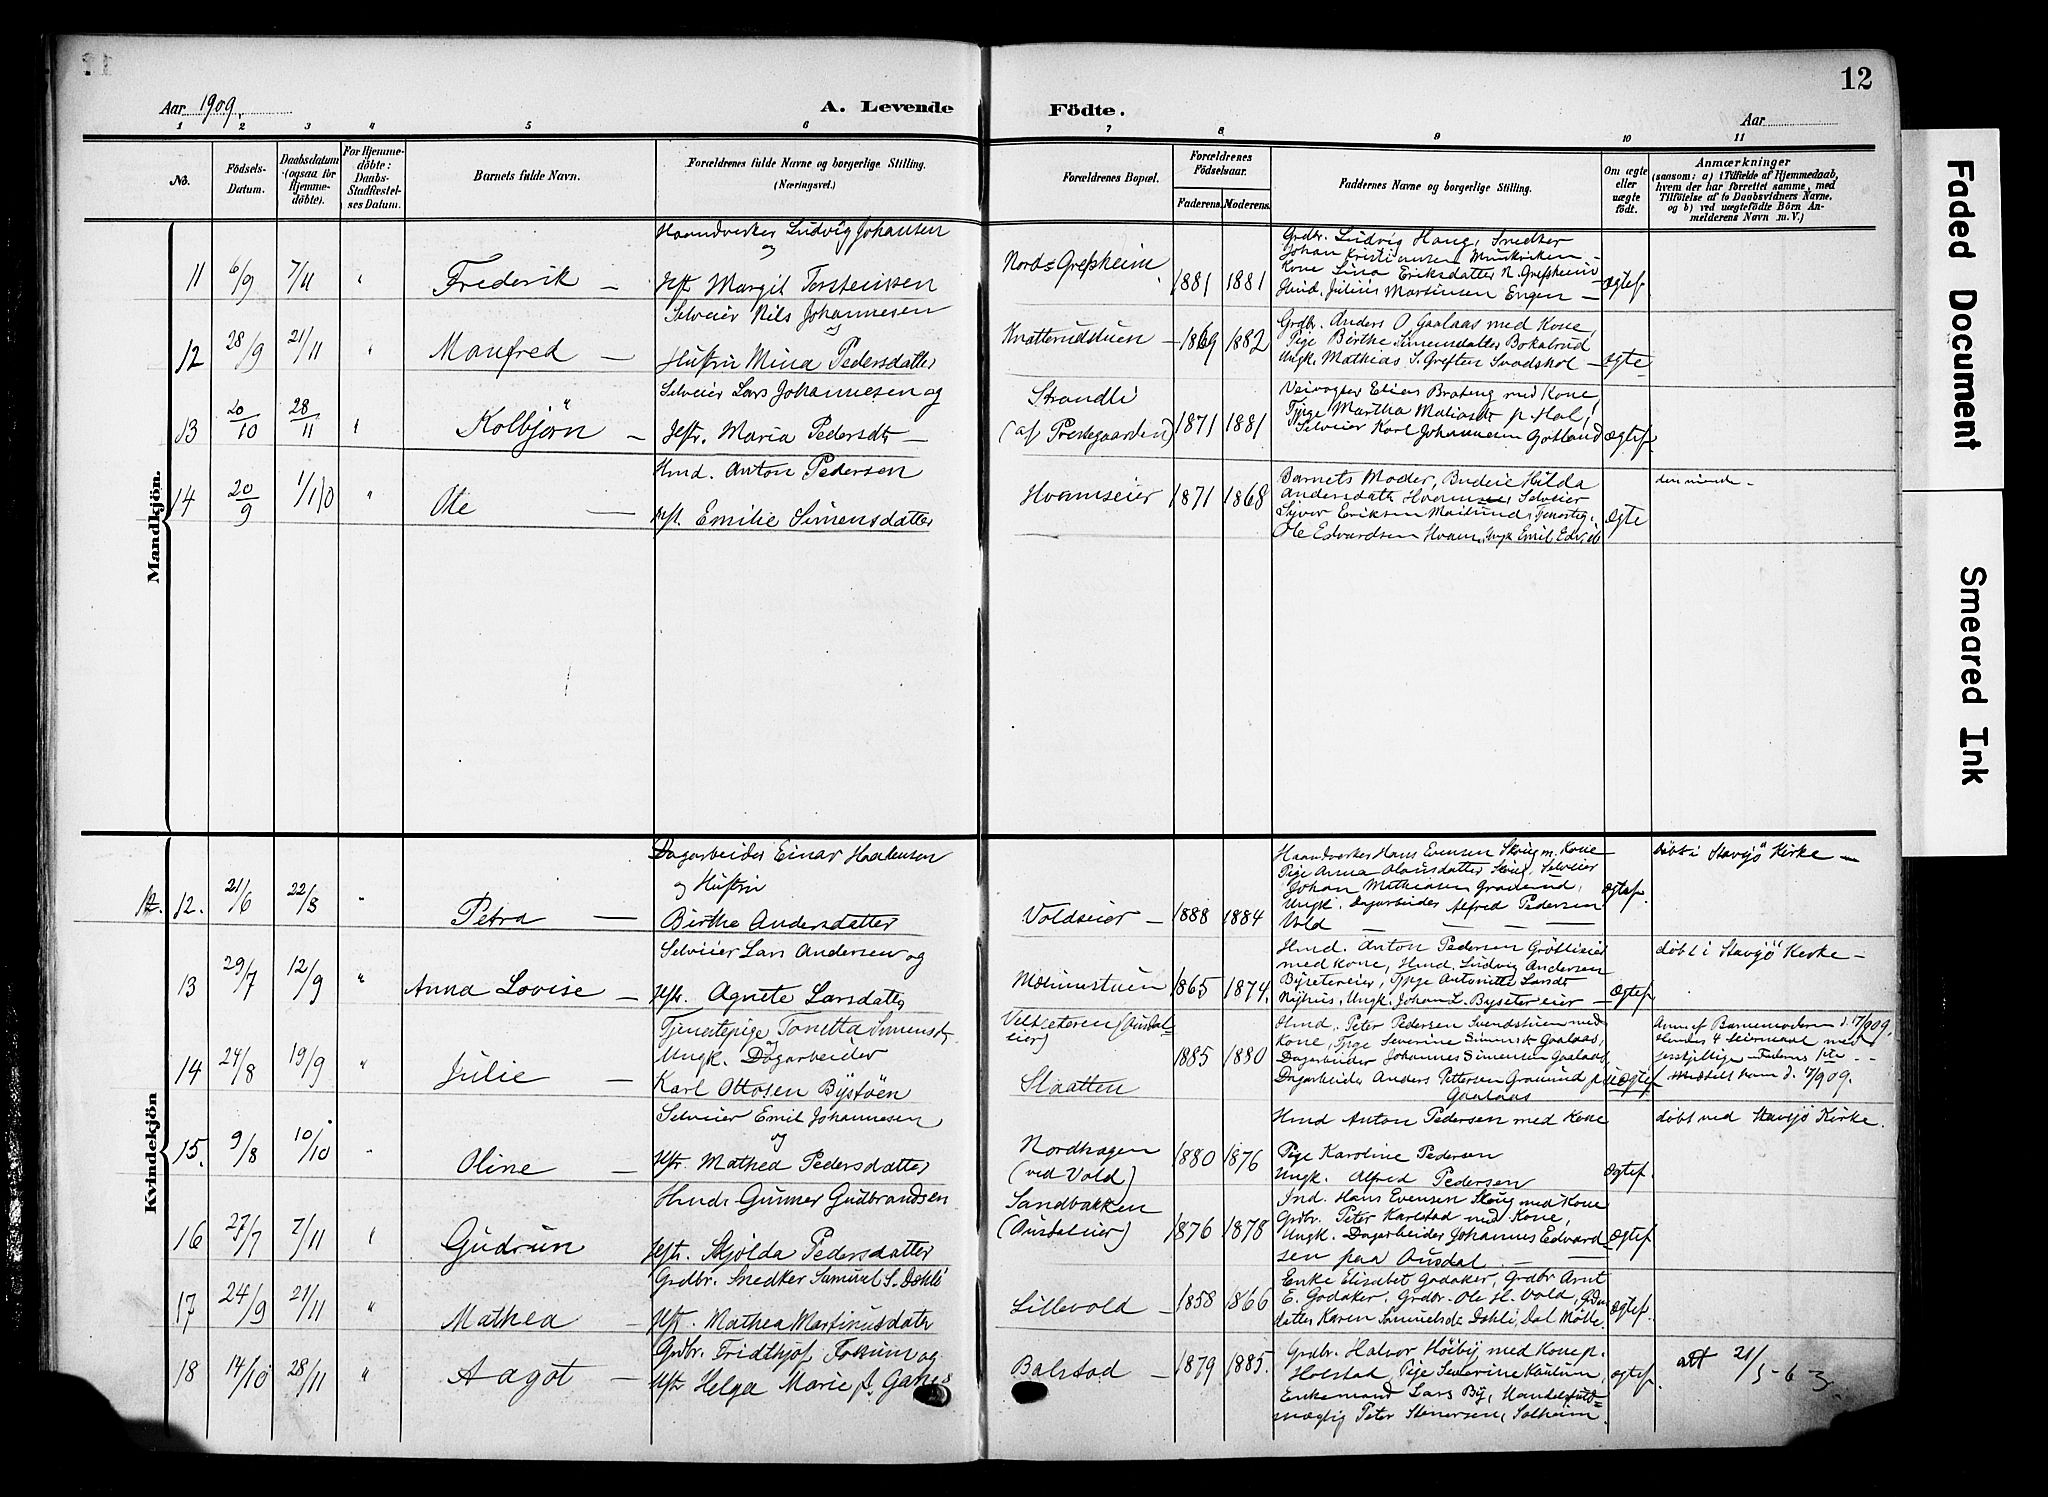 12
Aar 1909.
A. Levende Födte.
Aar
1 2 3 4 5 6 7 8 9 10 11
No.
Födsels-Datum.
Daabsdatum (ogsaa for Hjemmedöbte).
For Hjemmedöbte: Daabs-Stadfestelses Datum.
Barnets fulde Navn.
Forældrenes fulde Navne og borgerlige Stilling.
(Næringsvei.)
Forældrenes Bopæl.
Forældrenes Födselsaar.
Faderens. Moderens.
Faddernes Navne og borgerlige Stilling.
Om ægte eller uægte født.
Anmærkninger
(saasom: a) i Tilfælde af Hjemmedaab, hvem der har forrettet samme, med Tilföielse af to Daabsvidners Navne, og b) ved uægtefödte Börn Anmelderens Navn m. V.)
Mandkjön.
11 6/9 7/11 " Frederik —
Haandverker Ludvig Johansen
og
Hstr. Margit Torsteinsen
Nord-Grefsheim 1881 1881
Grdbr. Ludvig Haug, Snedker
Johan Kristiansen
Kone Lina Eriksdatter N. Grefsheim
Hmd. Julius Martinsen Engen —
ægtef.
12 28/9 21/11 " Manfred —
Selveier Nils Johannesen
og
Hustru Mina Pedersdatter
Knatterudduen — 1869 1882
Grdbr. Anders O Gaalaas med Kone,
Pige Birthe Simensdatter Bokalrud
Ungk. Mathias S. Greften —
ægte
13 20/10 28/11 " Kolbjörn —
Selveier Lars Johannesen og
Hstr. Maria Pedersdtr —
Strandli
(af Prestegaarden) 1871 1881
Veivogter Elias Brateng med Kone,
Tjpige Martha
Selveier Karl Johannesen Gotland
ægtef.
14 20/9 1/1 10 " Ole —
Hmd. Anton Pedersen
Hst. Emilie Simensdatter
Hvamseier 1871 1868
Barnets Moder, Budeie Hilda
Andersdatter Selveier
Syver Eriksen Mailund,
Ole Edvardsen Hvam, Ungk Emil
Ægte
Kvindekjön
12. 21/6 22/8 " Petra —
Dagarbeider Einar Haakensen
og Hustru
Birthe Andersdatter
Voldseier — 1888 1884
Haandverker Hans Evensen Skoug m. Kone
Pige Anna Olausdatter Skoug, Selveier
Johan Mathiasen
Ungk. Dagarbeider Alfred Pedersen
Vold — — —
ægtef.
döbt i Stavsjö Kirke —
13 29/7 12/9 " Anna Lovise —
Selveier Lars Andersen og
Hstr. Agnete Larsdatter
1865 1874.
Hmd. Anton Pedersen
med Kone, Hmd. Ludvig Andersen
Bysetereier, Tjpige Antonette
Nyhus, Ungk. Johan L. Byseter eier —
Ægtef.
døbt i Stavsjö Kirke —
14 24/8 19/9 " Julie —
Tjenestepige Tonetta Simensdt,
og
Ungk. Dagarbeider
Karl Ottosen Bystöen
Slaatten
1885 1880
Hmd. Peter Pedersen Svendstuen med
Kone, Tjpige Severine Simensdt Gaalaas,
Dagarbeider Johannes Simensen Gaalaas
Dagarbeider Anders Pettersen Granund p.
Gaalaas
uægtef
Anm af Barnemoderen d. 17/909.
Hendes 4 leiermaal med
forskjellige — Faderens 1ste —
15. 9/8 10/10 " Oline —
Selveier Emil Johannesen
og
Hstr. Mathea Pedersdatter
Nordhagen
(ved Vold) 1880 1876
Hmd Anton Pedersen med Kone
Pige Karoline Pedersen
Ungk. Alfred Pedersen
Ægtef.
döbt ved Stavsjö Kirke.
16 27/7 7/11 " Gudrun
Hmd. Gunner Gudbrandsen
Hstr. Skjolda Pedersdatter
Sandbakken
(Ausdaleier) 1876 1878
Ind. Hans Evensen Skoug med Kone
Grdbr. Peter Karlstad med Kone,
Ungk. Dagarbeider Johannes Edvard-
sen paa Ausdal. —
Ægtef
17 24/9 21/11 " Mathea —
Grdbr. Snedker Samuel S. Dehli
Hstr. Mathea Martinusdater
Lillevold — 1858 1866
Enke Elisabet Godaker, Grdbr Arnt
E. Godaker, Grdbr. Ole H. Vold,
datter Karen Samuelsdt Dehli,
Ægtef.
18 14/10 28/11 " Aagot —
Grdbr. Fridthjof Fossum og
Hstr Helga Marie
Balstad — 1879 1885.
Grdbr. Halvor Höiby med Kone p.
Holstad, Pige Severine
Enkemand Lars By, Handelsfuld-
mægtig Peter Stenersen, Solheim.
ægtef.
att 21/5-63.
Faded Document
Smeared Ink